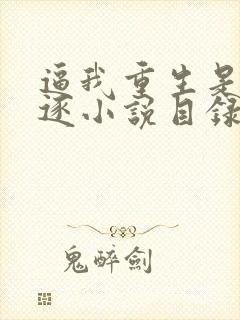 逼我重生是
逐小説目録
鬼醉劍